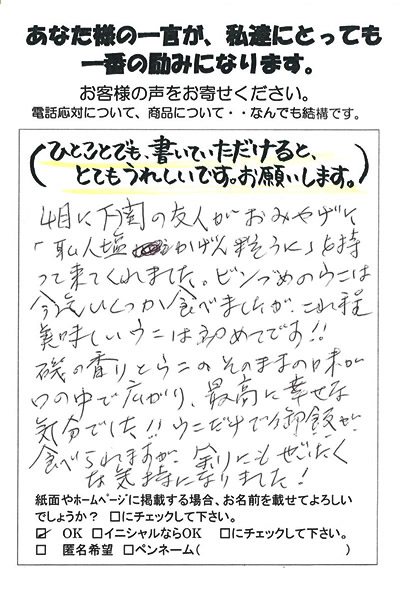 あなた様の一言が、私達にとっても
一番の励みになります。
お客様の声をお寄せください。
電話応対について、商品について・・なんでも結構です。
(ひとことでも、書いていただけると、
とてもうれしいです。お願いします。)
4月に下関の友人がおみやげに
「塩かげん粒うに」を持
って来てくれました。ビンづめのうには
今迄いくつか食べましたが、これ程
美味しいウニは初めてです!!
磯の香りとうにのそのままの味が
口の中で広がり、最高に幸せな
気分でした!!ウニだけで御飯が
食べられますが、余りにもぜいたく
な気持になりました!
紙面やホームページに掲載する場合、お名前を載せてよろしい
でしょうか? □にチェックして下さい。
☑ OK □イニシャルならOK □にチェックして下さい。
□ 匿名希望 □ペンネーム( )